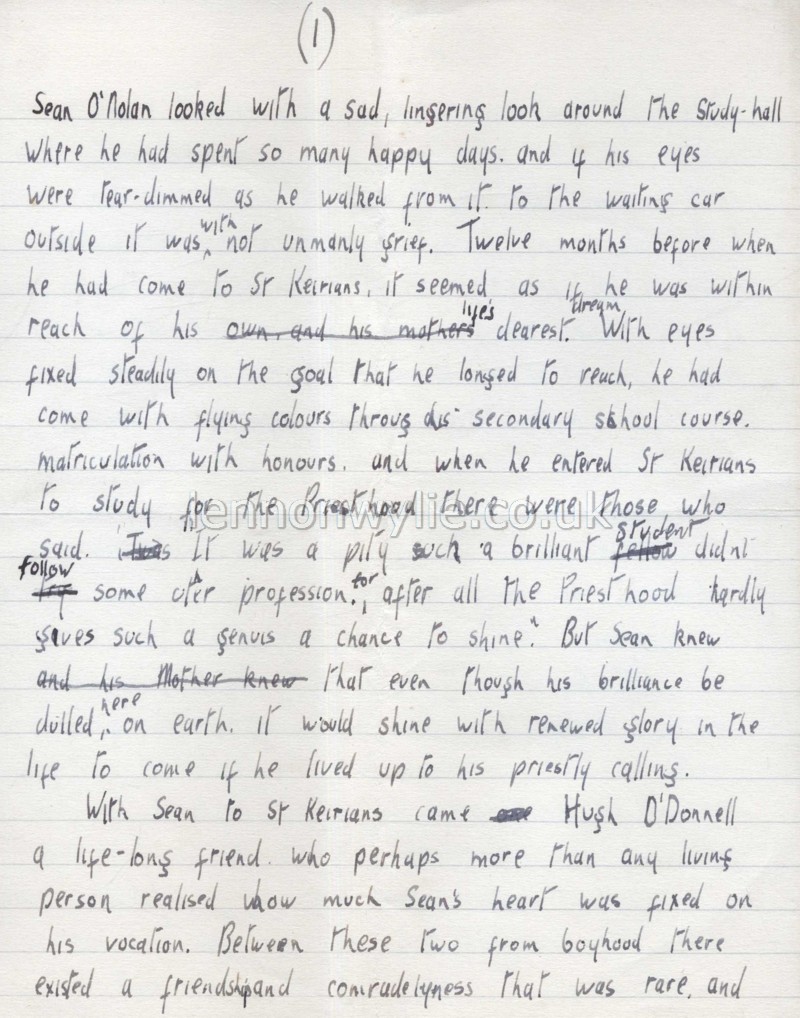 (1)
Sean O'Nolan looked with a sad, lingering look around the study-hall
where he had spent so many happy days. and if his eyes
were tear-dimmed as he walked from it. to the waiting car
outside it was with not unmanly grief. Twelve months before when
he had come to St Keirians, it seemed as if he was within
reach of his own, and his mothers life's dearest. dream With eyes
fixed steadily on the goal that he longed to reach, he had
come with flying colours throug his secondary school course.
matriculation with honours. and when he entered St Keirians
to study for the Priesthood there were those who
lennonwylie.co.uk
said. It was a pity such a brilliant fellow student didnt
try follow some other profession., for after all the Priesthood hardly
gives such a genuis a chance to shine". But Sean knew
and his Mother knew that even though his brilliance be
dulled, here on earth. it would shine with renewed glory in the
life to come if he lived up to his priestly calling.
With Sean to St Keirians came Hugh O'Donnell
a life-long friend. who perhaps more than any living
person realised how much Sean's heart was fixed on
his vocation. Between these two from boyhood there
existed a friendship and comradelyness that was rare, and